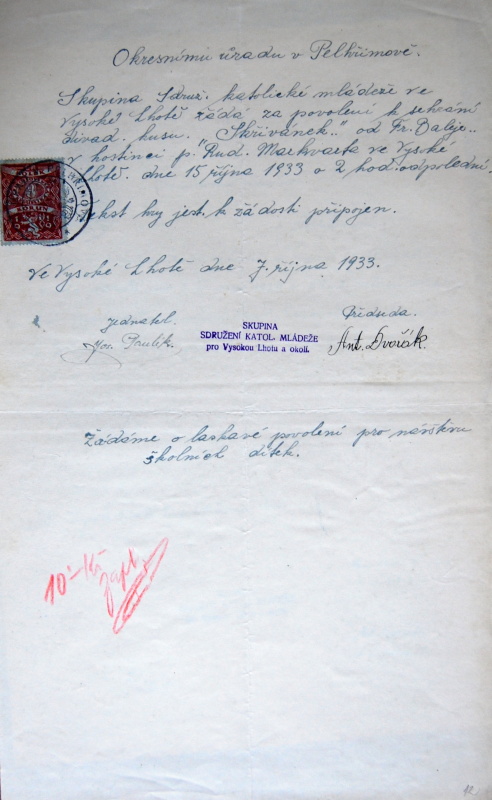 Okresnímu úřadu v Pelhřimově.
Skupina Sdruž. katolické mládeže ve
Vysoké Lhotě žádá za povolení k sehrání
divad. kusu. "Skřivánek" od Fr.
v hostinci p. Rud. Markvarta ve Vysoké
Lhotě. dne 15 října 1933 o 2 hod. odpolední.
Tekst hry jest. k žádosti připojen.
Ve Vysoké Lhotě dne 7. října 1933.
jednatel.
Předseda.
Jos. Paulík.
SKUPINA
SDRUŽENÍ KATOL. MLÁDEŽE
pro Vysokou Lhotu a okolí.
Ant. Dvořák.
Žádáme o laskavé povolení pro návštěvu
školních dítek.
10 Kč
zapl.
12